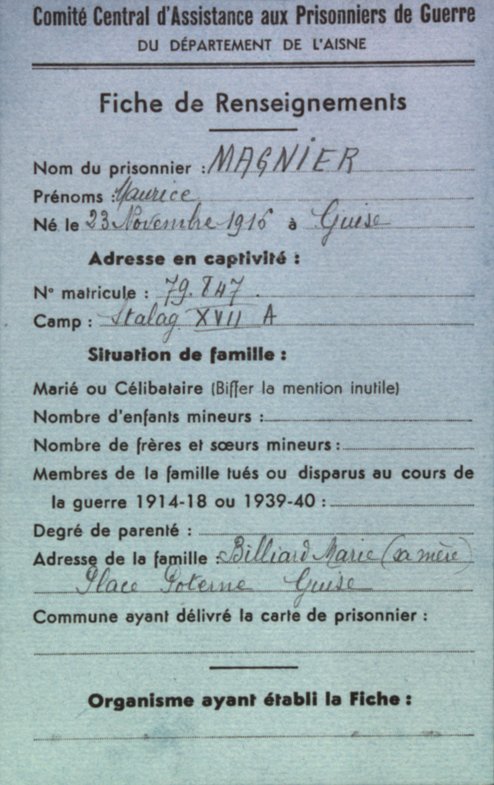 Comité Central d'Assistance aux Prisonniers de Guerre
DU DÉPARTEMENT DE L'AISNE
Fiche de Renseignements
Nom du prisonnier : MAGNIER
Prénoms : Maurice
Né le 23 Novembre 1916 à Guise
Adresse en captivité :
N° matricule : 79.847
Camp : Stalag XVII A
Situation de famille :
Marié ou Célibataire (Biffer la mention inutile)
Nombre d'enfants mineurs :
Nombre de frères et sœurs mineurs :
Membres de la famille tués ou disparus au cours de
la guerre 1914-18 ou 1939-40 :
Degré de parenté :
Adresse de la famille : Billiard Marie (sa mère)
Place Poterne Guise
Commune ayant délivré la carte de prisonnier :
Organisme ayant établi la Fiche :